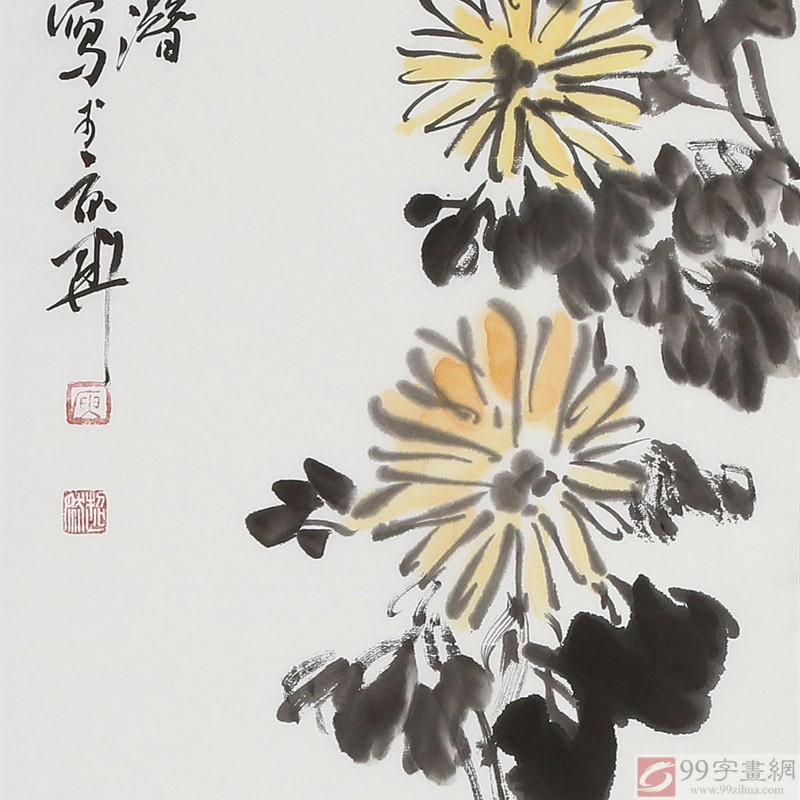 潜
寫於京華
超然
99字畫網
www.99zihua.com